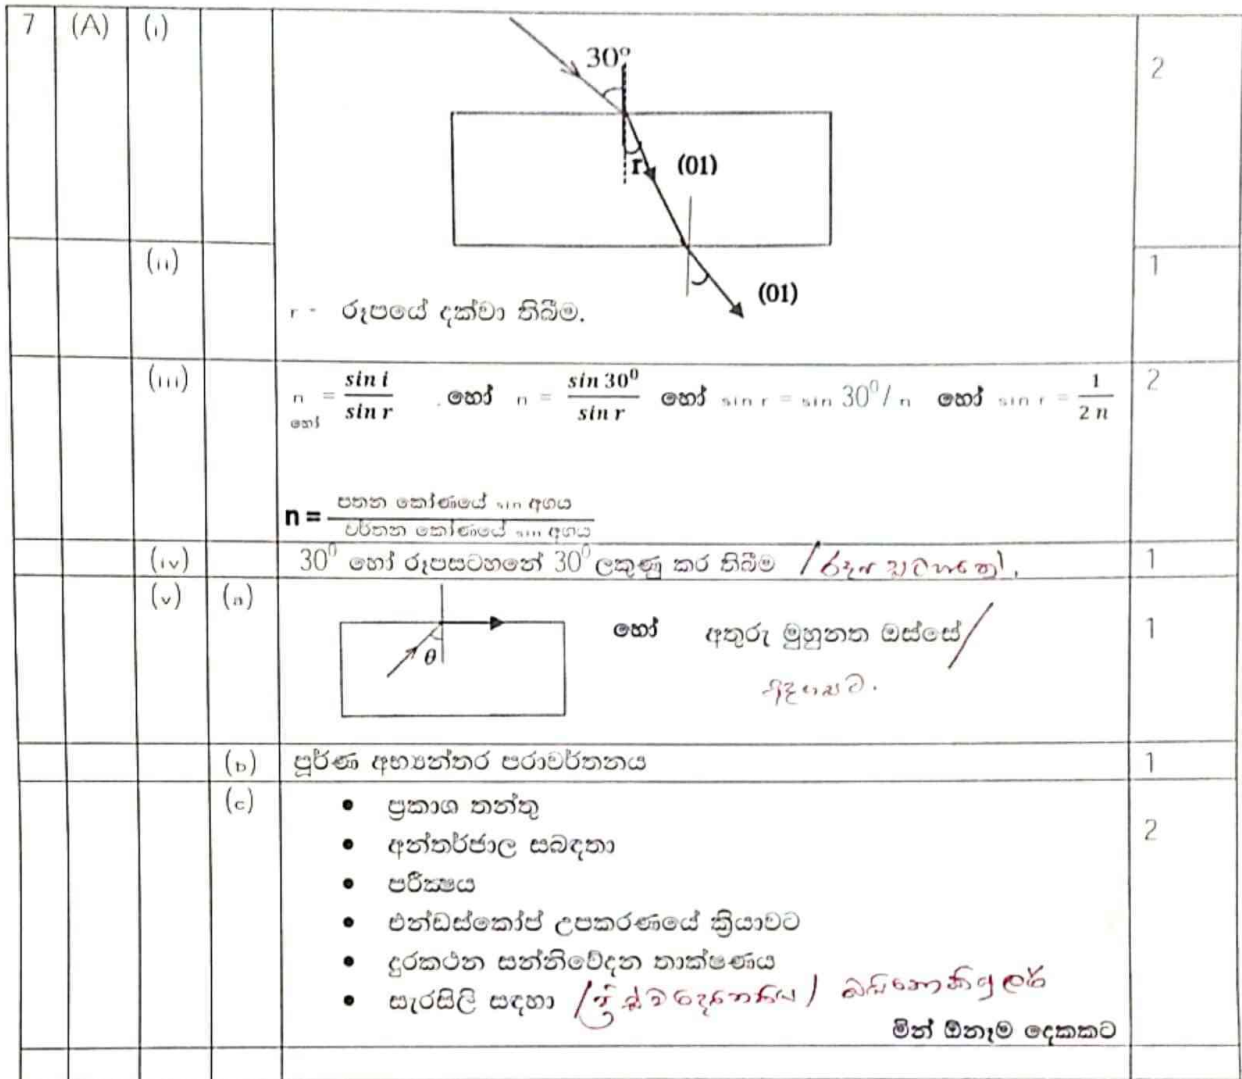 7 (A) (i) 2
30°
r (01)
(ii) 1
(01)
r - රූපයේ දක්වා තිබීම.
(iii) n = sin i / sin r හෝ n = sin 30⁰ / sin r හෝ sin r = sin 30⁰/ n හෝ sin r = 1 / 2 n 2
හෝ
n = පතන කෝණයේ sin අගය / වර්තන කෝණයේ sin අගය
(iv) 30⁰ හෝ රූපසටහනේ 30⁰ ලකුණු කර තිබීම 1
(v) (a) θ හෝ අතුරු මුහුනත ඔස්සේ/ 1
(b) පූර්ණ අභ්‍යන්තර පරාවර්තනය 1
(c) • ප්‍රකාශ තන්තු
• අන්තර්ජාල සබඳතා 2
• පරීක්‍ෂය
• එන්ඩස්කෝප් උපකරණයේ ක්‍රියාවට
• දුරකථන සන්නිවේදන තාක්ෂණය
• සැරසිලි සඳහා
මින් ඕනෑම දෙකකට